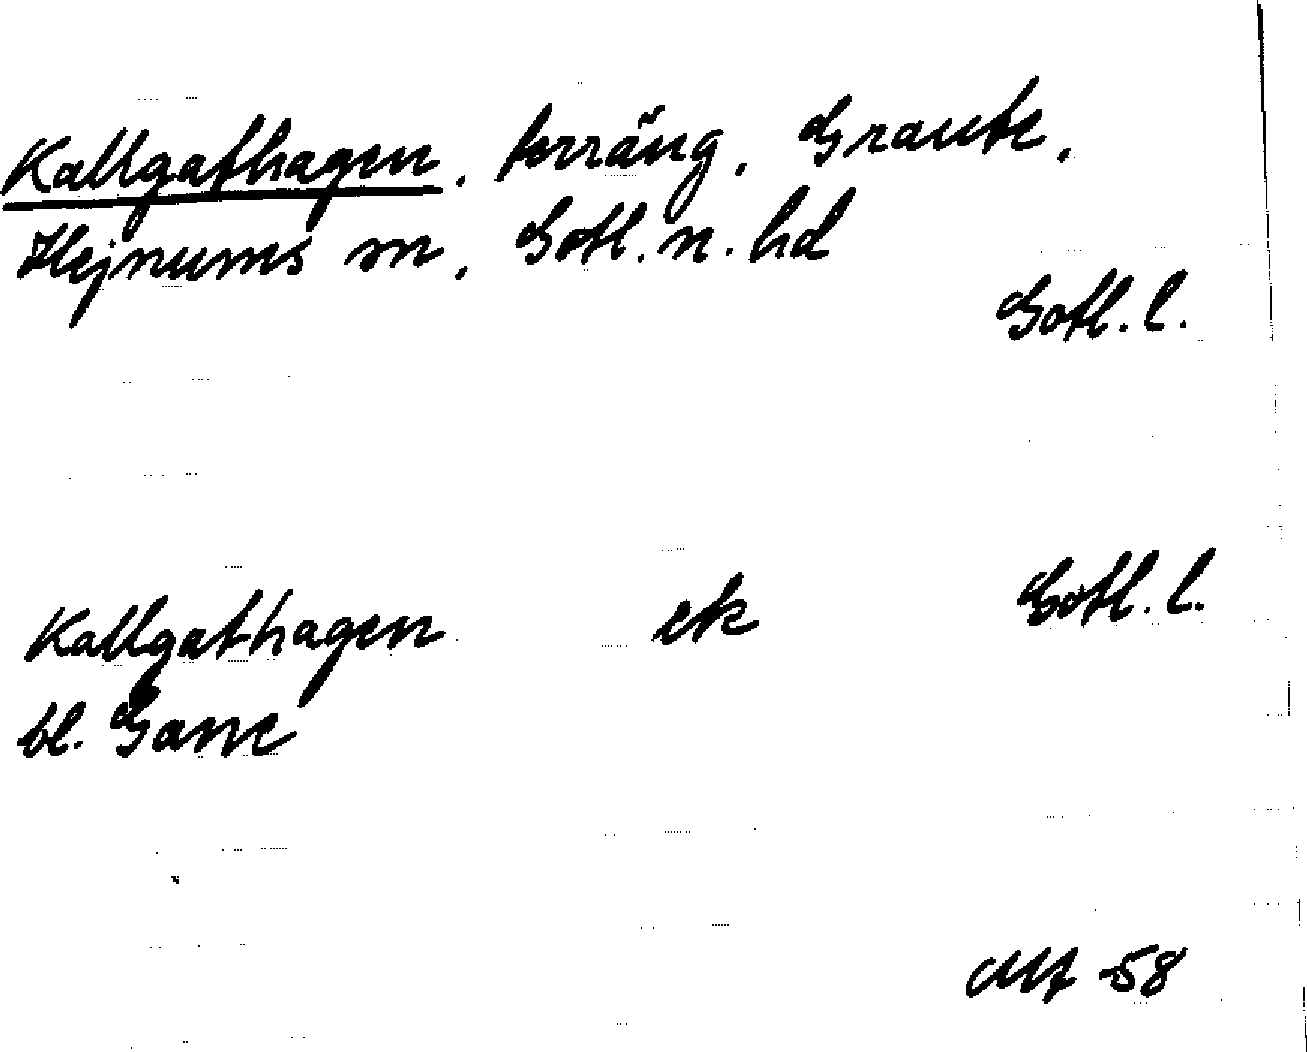 Kallgathagen, terräng, Graute,
Hejnums sn, Gotl. n. hd
Gotl. l.
Kallgathagen ek Gotl. l.
bl. Gane
58